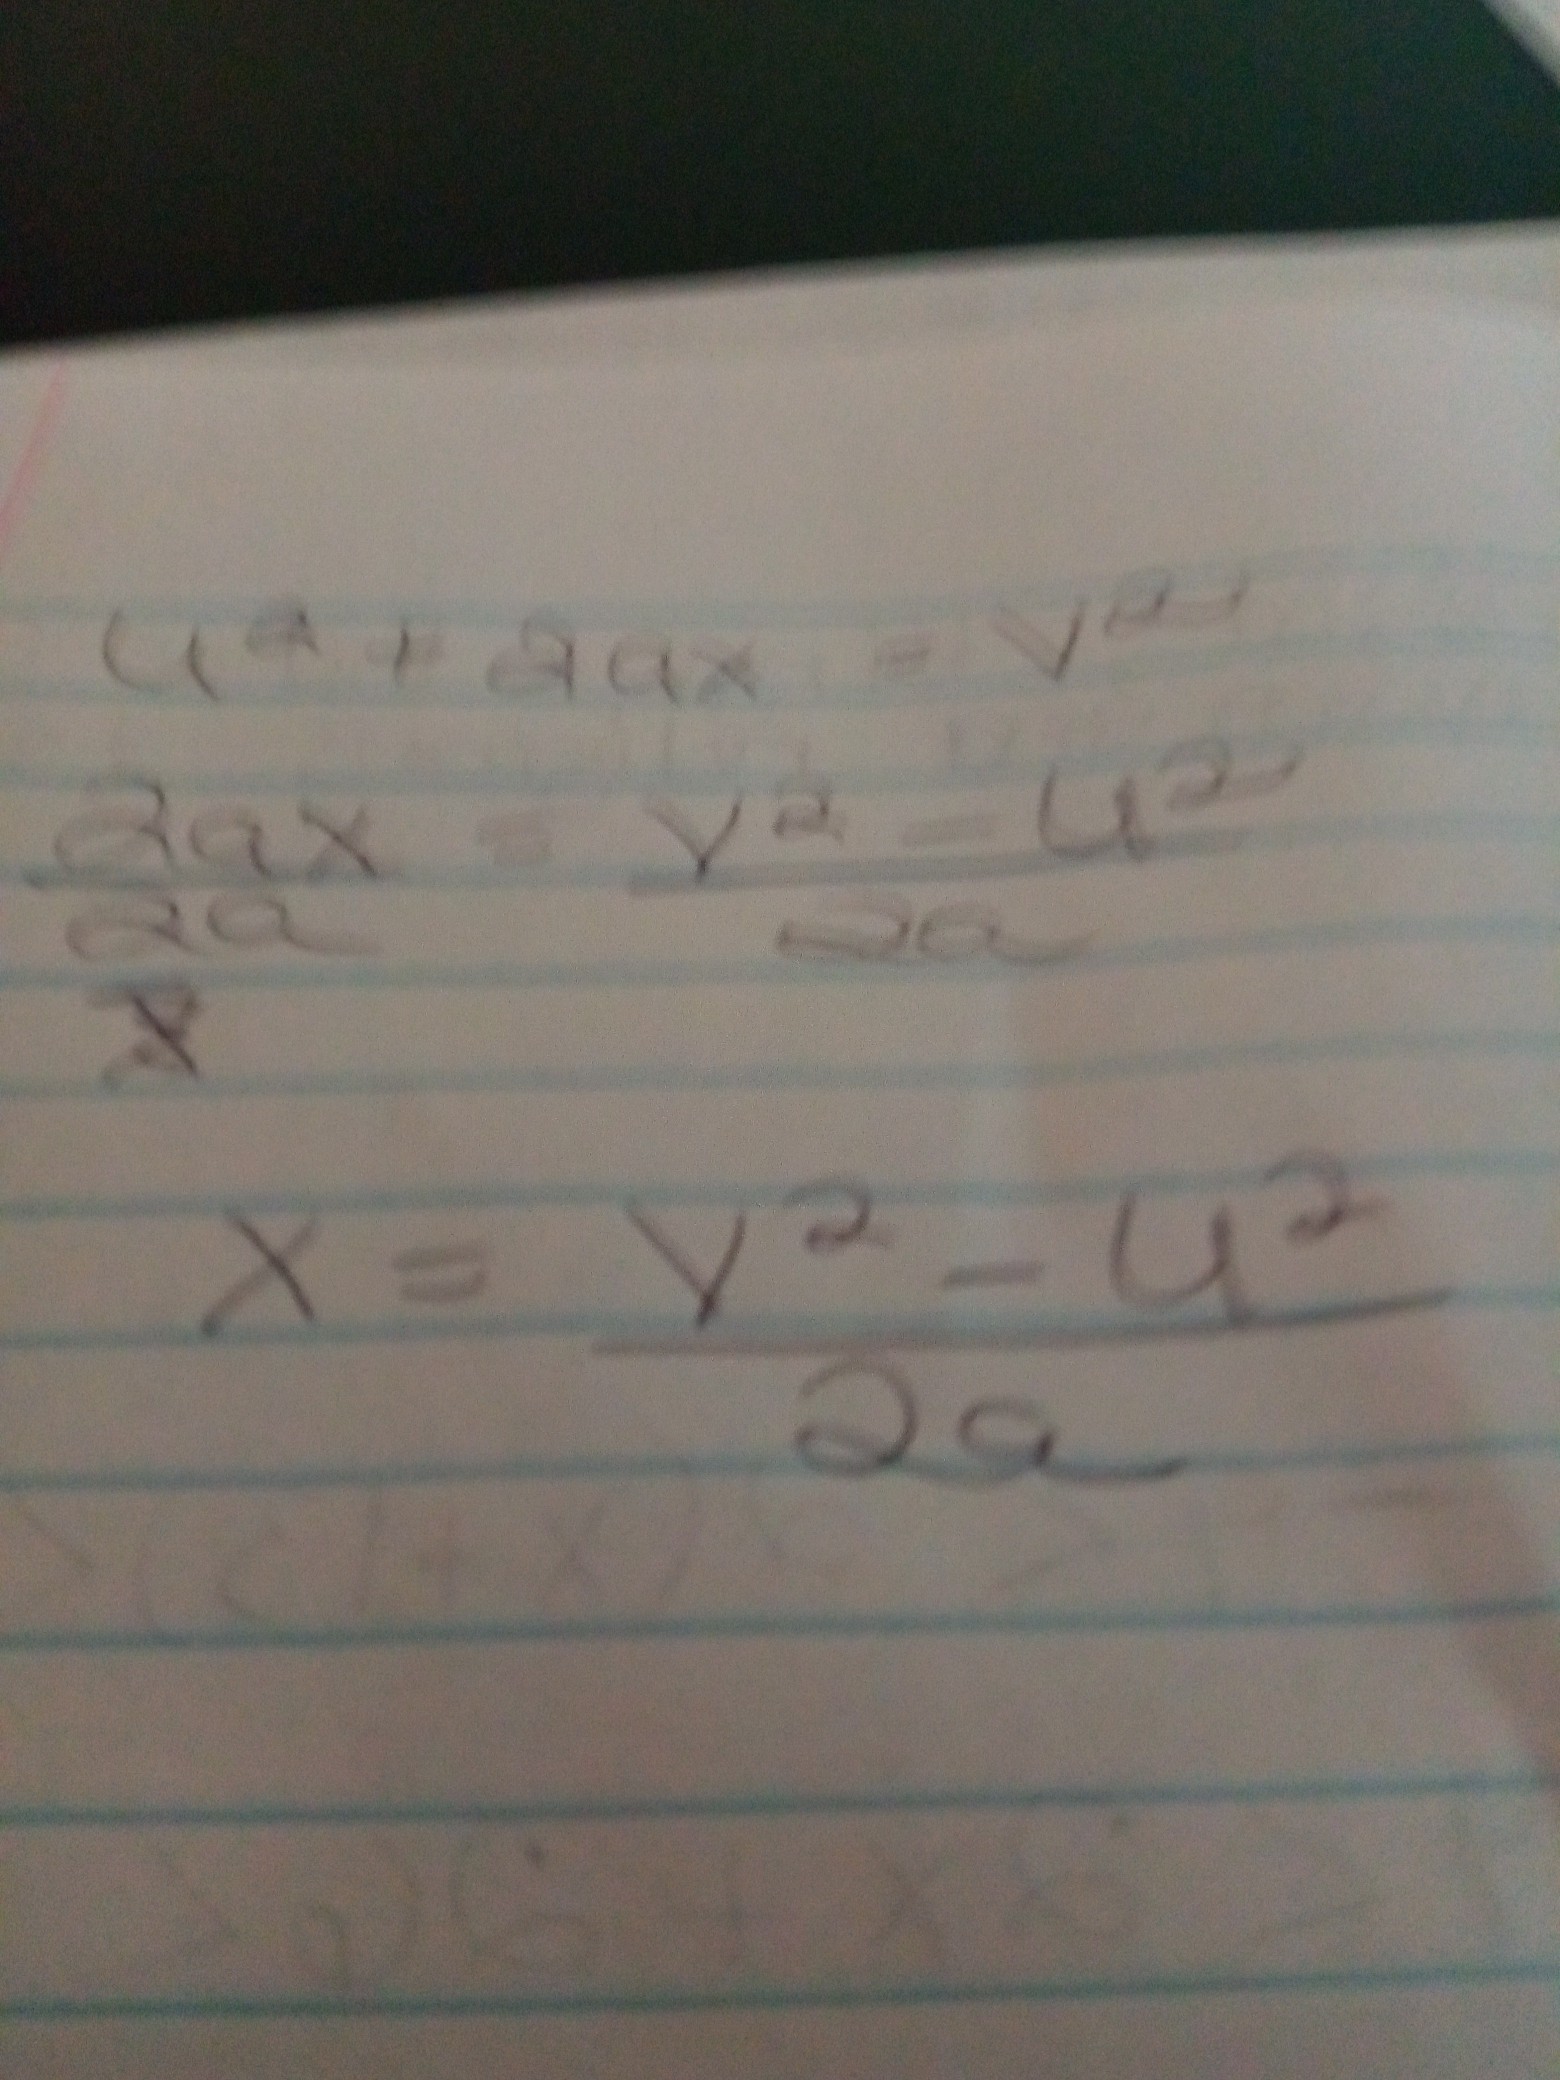 u² + 2ax = v²
2ax/2a = v² - u²/2a
x = v² - u²/2a